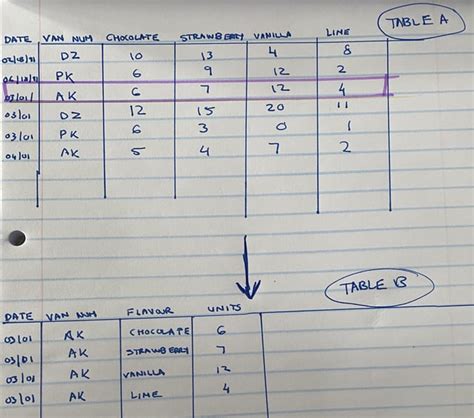 TABLE A
DATE VAN NUM CHOCOLATE STRAWBERRY VANILLA LIME
DZ 10 13 4 8
PK 6 9 12 2
03/01/ AK 6 7 12 4
03/01 DZ 12 15 20 11
03/01 PK 6 3 0 1
04/01 AK 5 4 7 2
TABLE B
DATE VAN NUM FLAVOUR UNITS
03/01 AK CHOCOLATE 6
03/01 AK STRAWBERRY 7
03/01 AK VANILLA 12
03/01 AK LIME 4